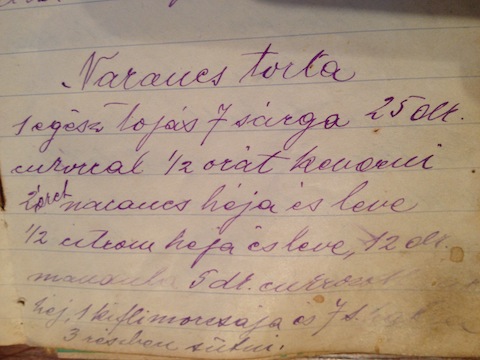 Narancs torta
1 egész tojás 7 sárga 25 dk.
cukorral 1/2 órát keverni
narancs héja és leve
1/2 citrom héja és leve, 12 dk.
mandula 5 dk.
héj, 1 kifli morzsája és 7
3 részben sütni.